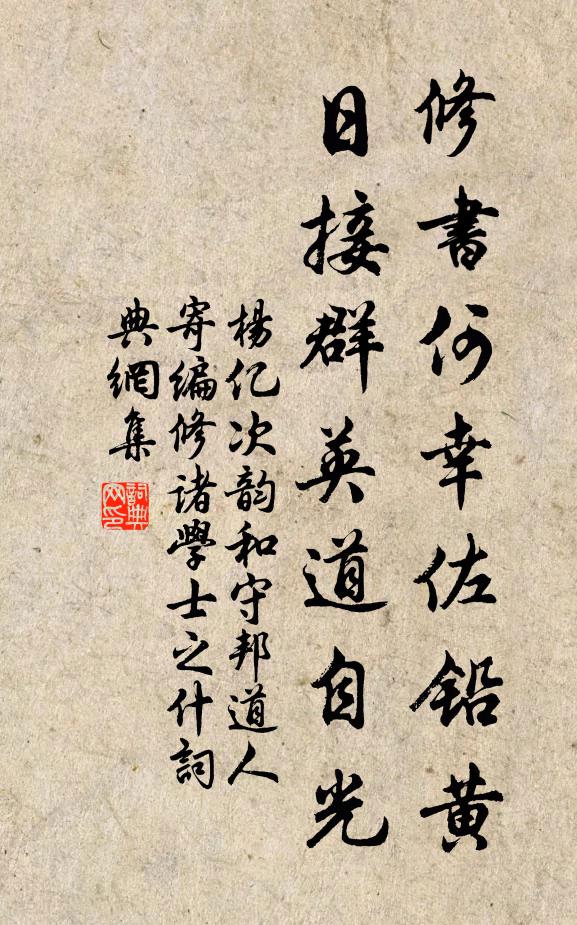 修書何幸佐铅黄
日接群英道自光
楊亿次韵和守邦道人
寄编修诸學士之什詞
典網集
詞典網印